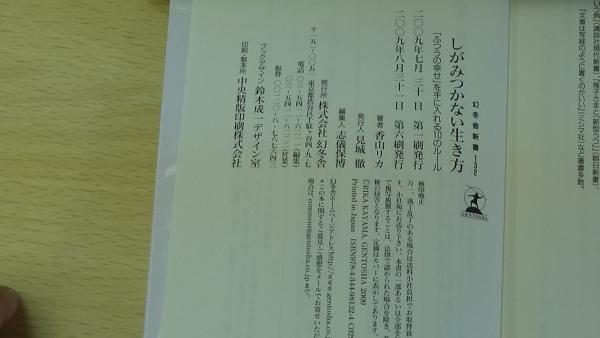 いう病』(講談社現代新書)、『雅子さまと「新型うつ」』(朝日新書)、
『文章は写経のように書くのがいい』(ミシマ社)など著書多数。
幻冬舎新書 132
しがみつかない生き方
「ふつうの幸せ」を手に入れる10のルール
二〇〇九年七月三十日 第一刷発行
二〇〇九年八月三十一日 第六刷発行
著者 香山リカ
発行人 見城 徹
編集人 志儀保博
発行所 株式会社 幻冬舎
〒一五一-〇〇五一 東京都渋谷区千駄ヶ谷四-九-七
電話 〇三-五四一一-六二一一(編集)
〇三-五四一一-六二二二(営業)
振替 〇〇一二〇-八-七六七六四三
ブックデザイン 鈴木成一デザイン室
印刷・製本所 中央精版印刷株式会社
GENTOSHA
検印廃止
万一、落丁乱丁のある場合は送料小社負担でお取替致
す。小社宛にお送り下さい。本書の一部あるいは全部を
で複写複製することは、法律で認められた場合を除き、著
権の侵害となります。定価はカバーに表示してあります。
©RIKA KAYAMA, GENTOSHA 2009
Printed in Japan ISBN978-4-344-98132-4 C029
幻冬舎ホームページアドレス http://www.gentosha.co
*この本に関するご意見・ご感想をメールでお寄せいただ
場合は、comment@gentosha.co.jpまで。